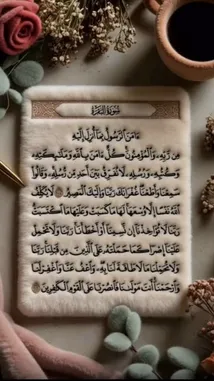 سورة البقرة
ءامن الرسول بما أنزل إليه
من ربه، والمؤمنون كل ءامن بالله وملئكته،
وكتبه، ورسله، لا نفرق بين أحد من رسله، وقالوا
سمعنا وأطعنا غفرانك ربنا وإليك المصير لا يكلف
الله نفسا إلا وسعها لها ما كسبت وعليها ما اكتسبت
ربنا لا تؤاخذنا إن نسينا أو أخطأنا ربنا ولا تحمل
علينا إصرا كما حملته على الذين من قبلنا ربنا
ولا تحملنا ما لا طاقة لنا به، واعف عنا واغفر لنا
وارحمنا أنت مولىنا فانصرنا على القوم الكفرين